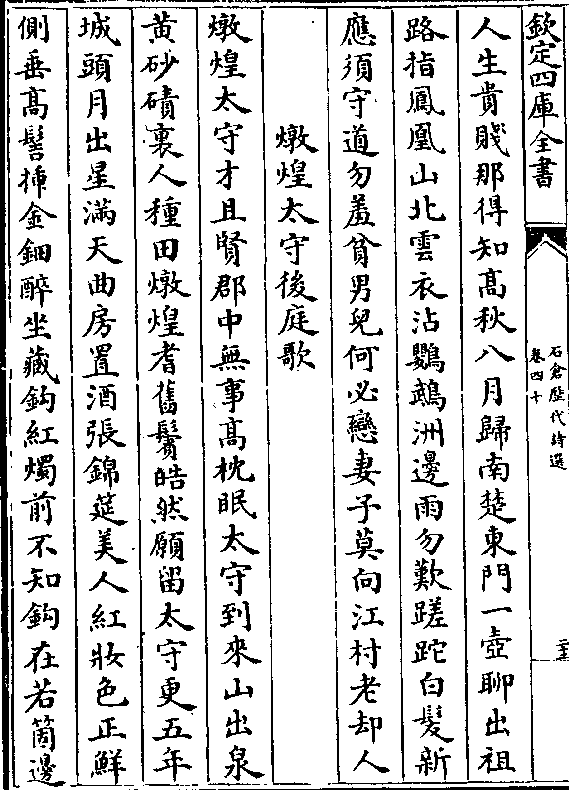 欽定四庫全書
石倉歷代詩選
卷四十
二十五
人生貴賤那得知髙秋八月歸南楚東門一壺聊出祖
路指鳳凰山北雲衣沾鸚鵡洲邊雨勿歎蹉跎白髮新
應須守道勿羞貧男兒何必戀妻子莫向江村老却人
燉煌太守後庭歌
燉煌太守才且賢郡中無事髙枕眠太守到來山出泉
黄砂磧裏人種田燉煌耆舊鬢皓然願留太守更五年
城頭月出星滿天曲房置酒張錦筵美人紅妝色正鮮
側垂髙髻揷金鈿醉坐藏鈎紅燭前不知鈎在若箇邊